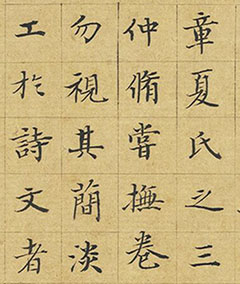 章夏氏之三
仲脩嘗撫卷
勿視其簡淡
工於詩文者